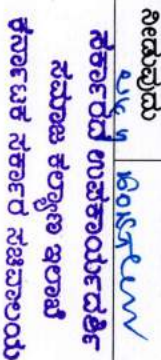 ನೀಡುವುದು
ಸರ್ಕಾರದ ಉಪಕಾರ್ಯದರ್ಶಿ
ಸಮಾಜ ಕಲ್ಯಾಣ ಇಲಾಖೆ
ಕರ್ನಾಟಕ ಸರ್ಕಾರ ಸಚಿವಾಲಯ